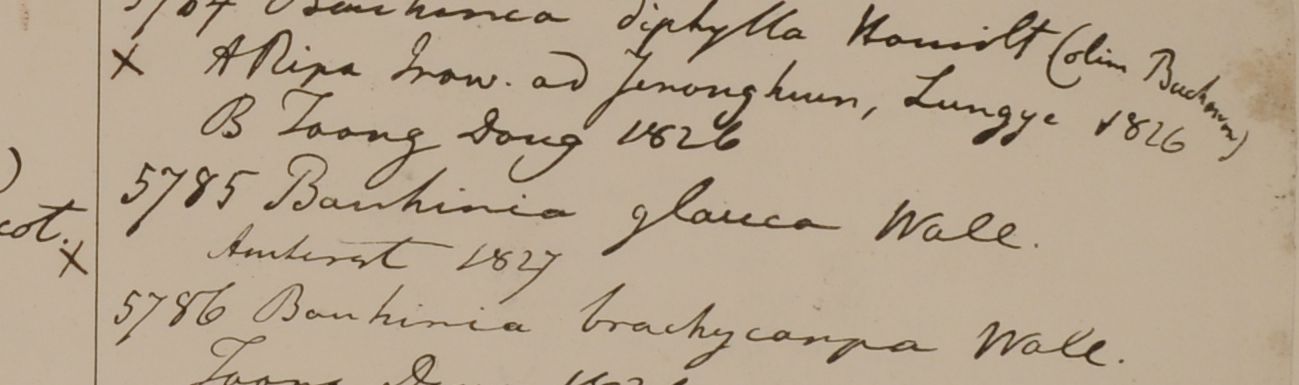 5784 Bauhinia diphylla Hamilt (olim Buchanan)
x A Ripa Iraw. ad Jenonghuen, Lungye 1826
B Toong Dong 1826
5785 Bauhinia glauca Wall.
cot.
x Amherst 1827
5786 Bauhinia brachycarpa Wall.
Toong Dong 1826